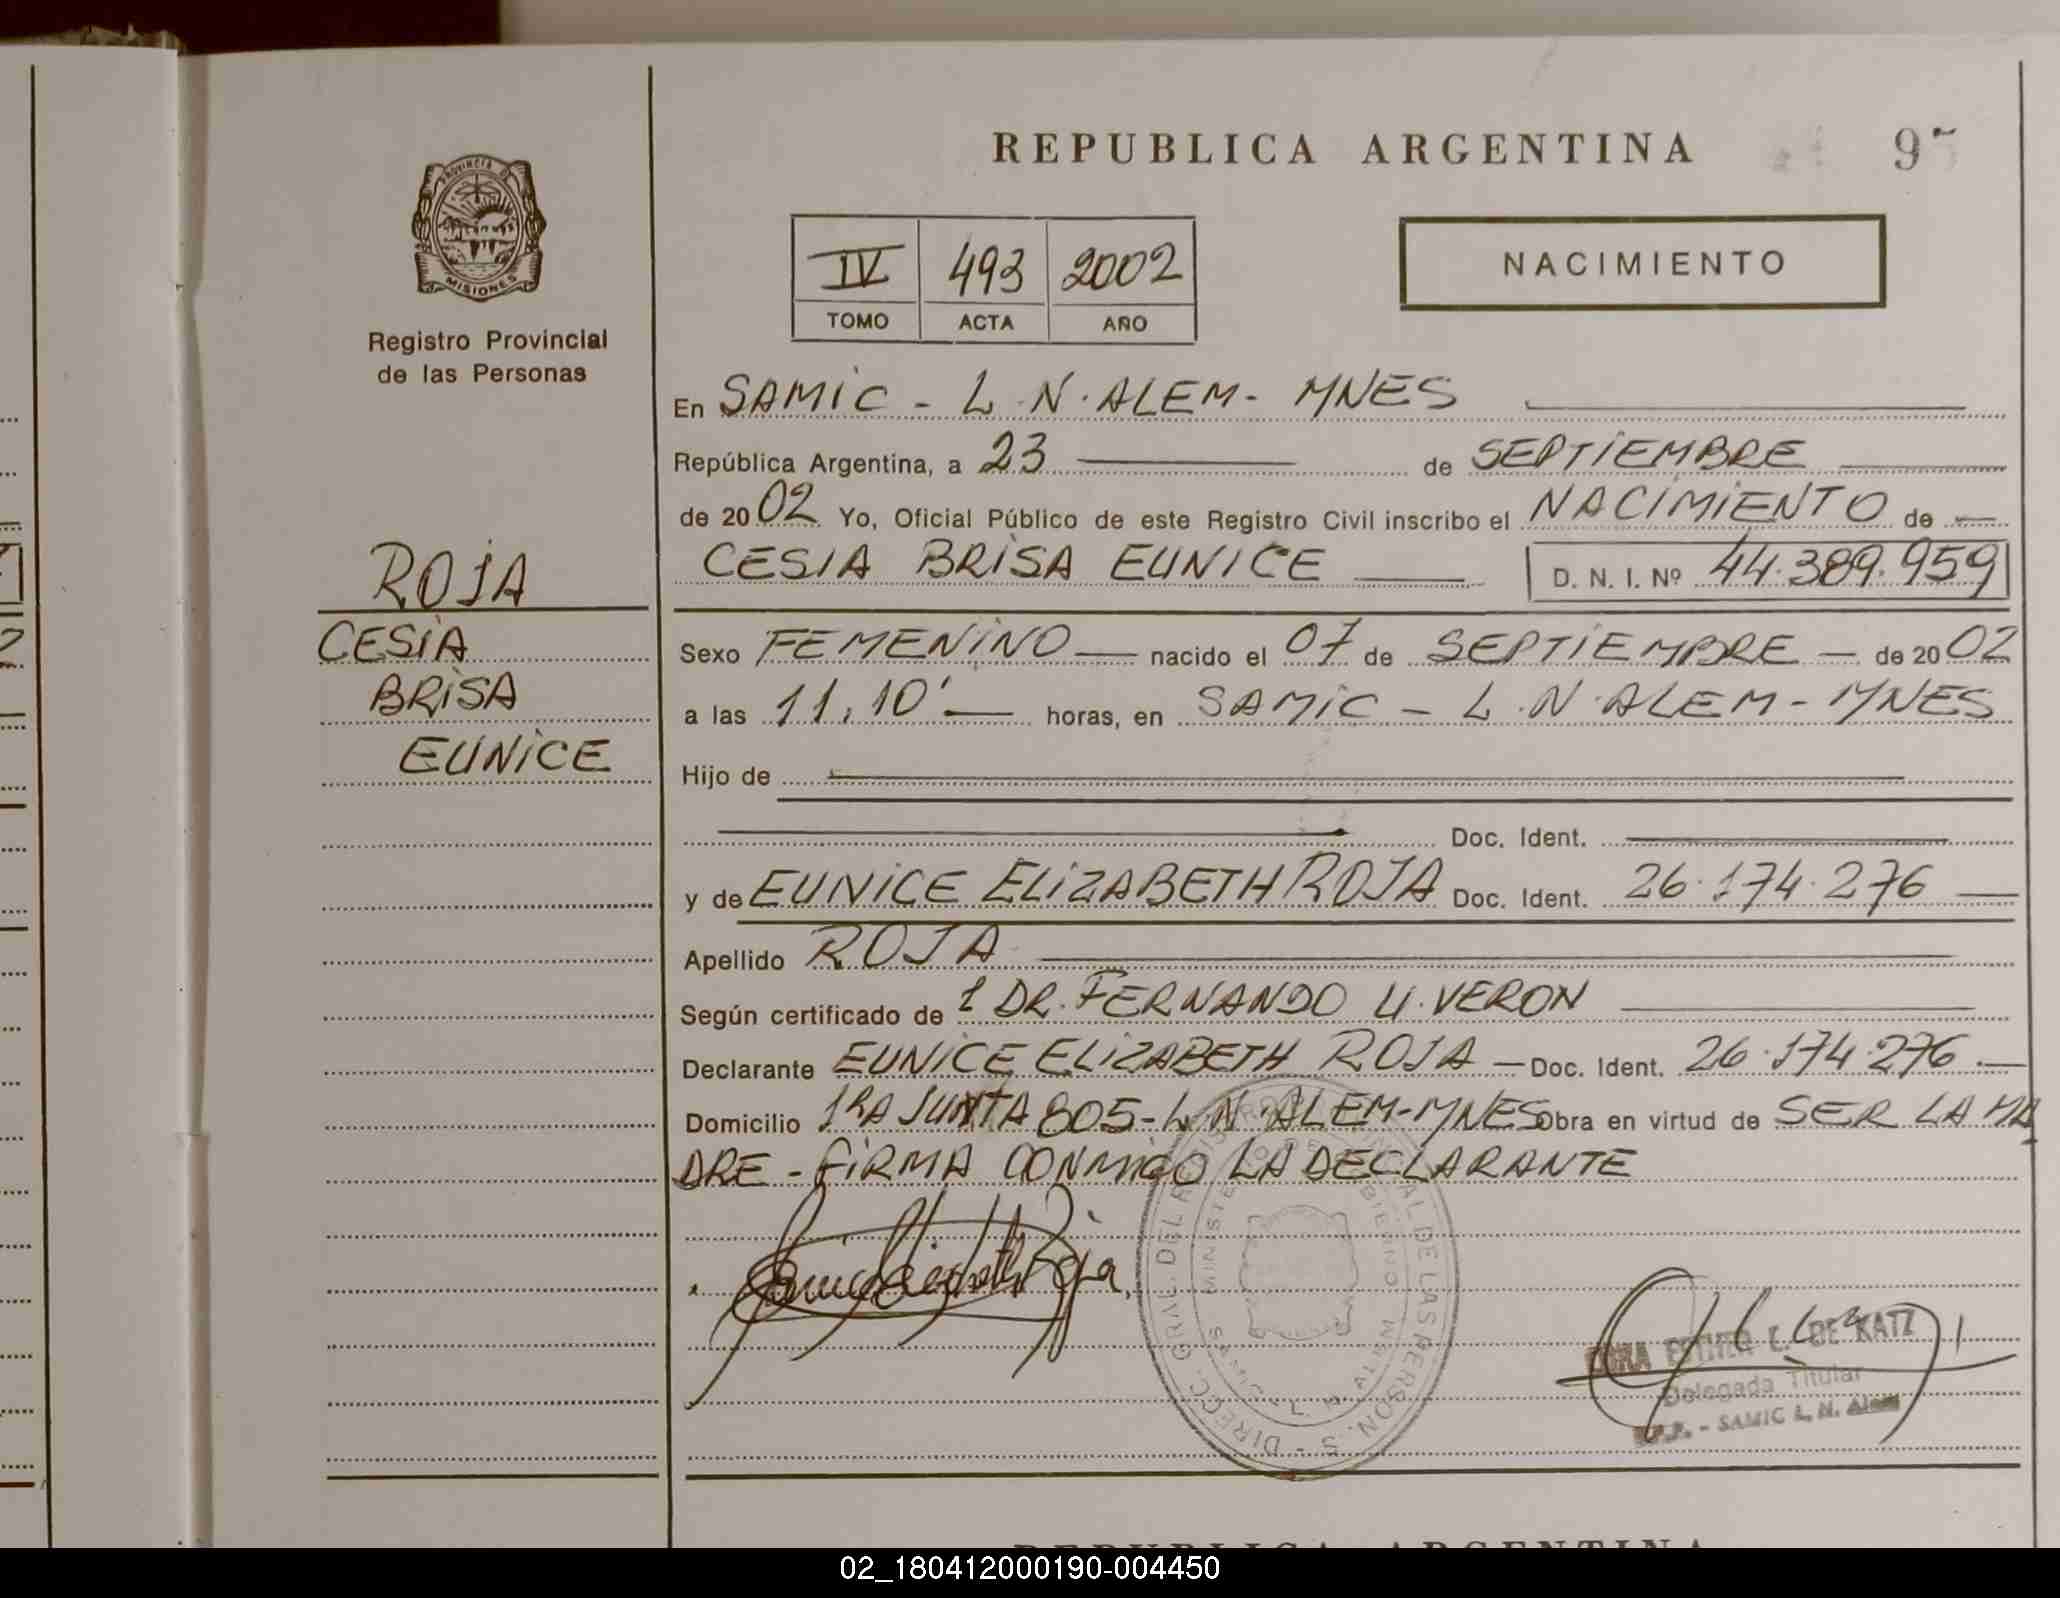 REPUBLICA ARGENTINA
PROVINCIA DE
MISIONES
Registro Provincial
de las Personas
IV 493 2002
TOMO ACTA AÑO
NACIMIENTO
En SAMIC - L.N. ALEM - MNES
República Argentina, a 23 de SEPTIEMBRE
de 2002 Yo, Oficial Público de este Registro Civil inscribo el NACIMIENTO de
CESIA BRISA EUNICE D. N. I. Nº 44.389.959
ROJA
CESIA
BRISA
EUNICE
Sexo FEMENINO nacido el 07 de SEPTIEMBRE de 2002
a las 11,10' horas, en SAMIC - L.N. ALEM - MNES
Hijo de
Doc. Ident.
y de EUNICE ELIZABETH ROJA Doc. Ident. 26.174.276
Apellido ROJA
Según certificado de 1 DR. FERNANDO U. VERON
Declarante EUNICE ELIZABETH ROJA Doc. Ident. 26.174.276
Domicilio 1RA JUNTA 805 - L.N. ALEM - MNES Obra en virtud de SER LA MA
DRE - FIRMA CONMIGO LA DECLARANTE
DE KATZ
Delegada Titular
SAMIC L. N. Alem
REPUBLICA ARGENTINA
02_180412000190-004450